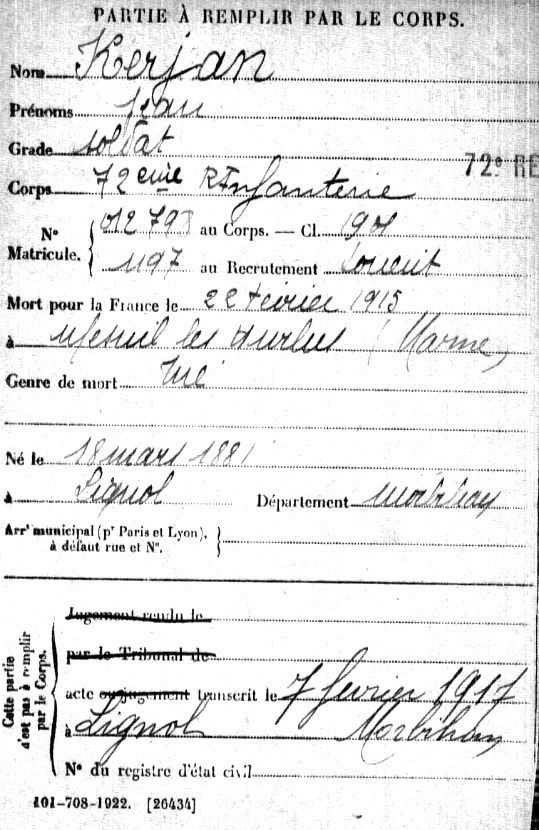 PARTIE À REMPLIR PAR LE CORPS.
Nom Kerjan
Prénoms Jean
Grade soldat
72e RE
Corps 72eme R Infanterie
N° Matricule. 012 798 au Corps. — Cl. 1901
1197 au Recrutement Lorient
Mort pour la France le 22 février 1915
à Mesnil les Hurlus (Marne)
Genre de mort Tué
Né le 18 mars 1881
à Lignol Département Morbihan
Arrt municipal (pr Paris et Lyon),
à défaut rue et N°.
Cette partie n'est pas à remplir par le Corps.
Jugement rendu le
par le Tribunal de
acte ou jugement transcrit le 7 février 1917
à Lignol Morbihan
N° du registre d'état civil
101-708-1922. [26434]